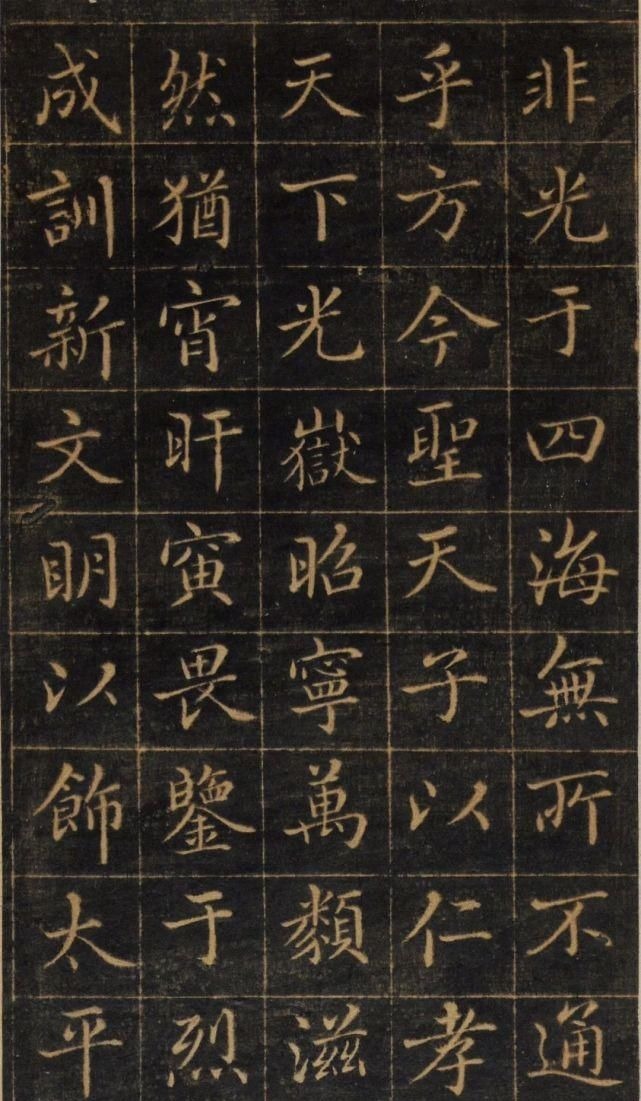 非光于四海無所不通
乎方今聖天子以仁孝
天下光嶽昭寧萬類滋
然猶宵旰寅畏鑒于烈
成訓新文明以飾太平